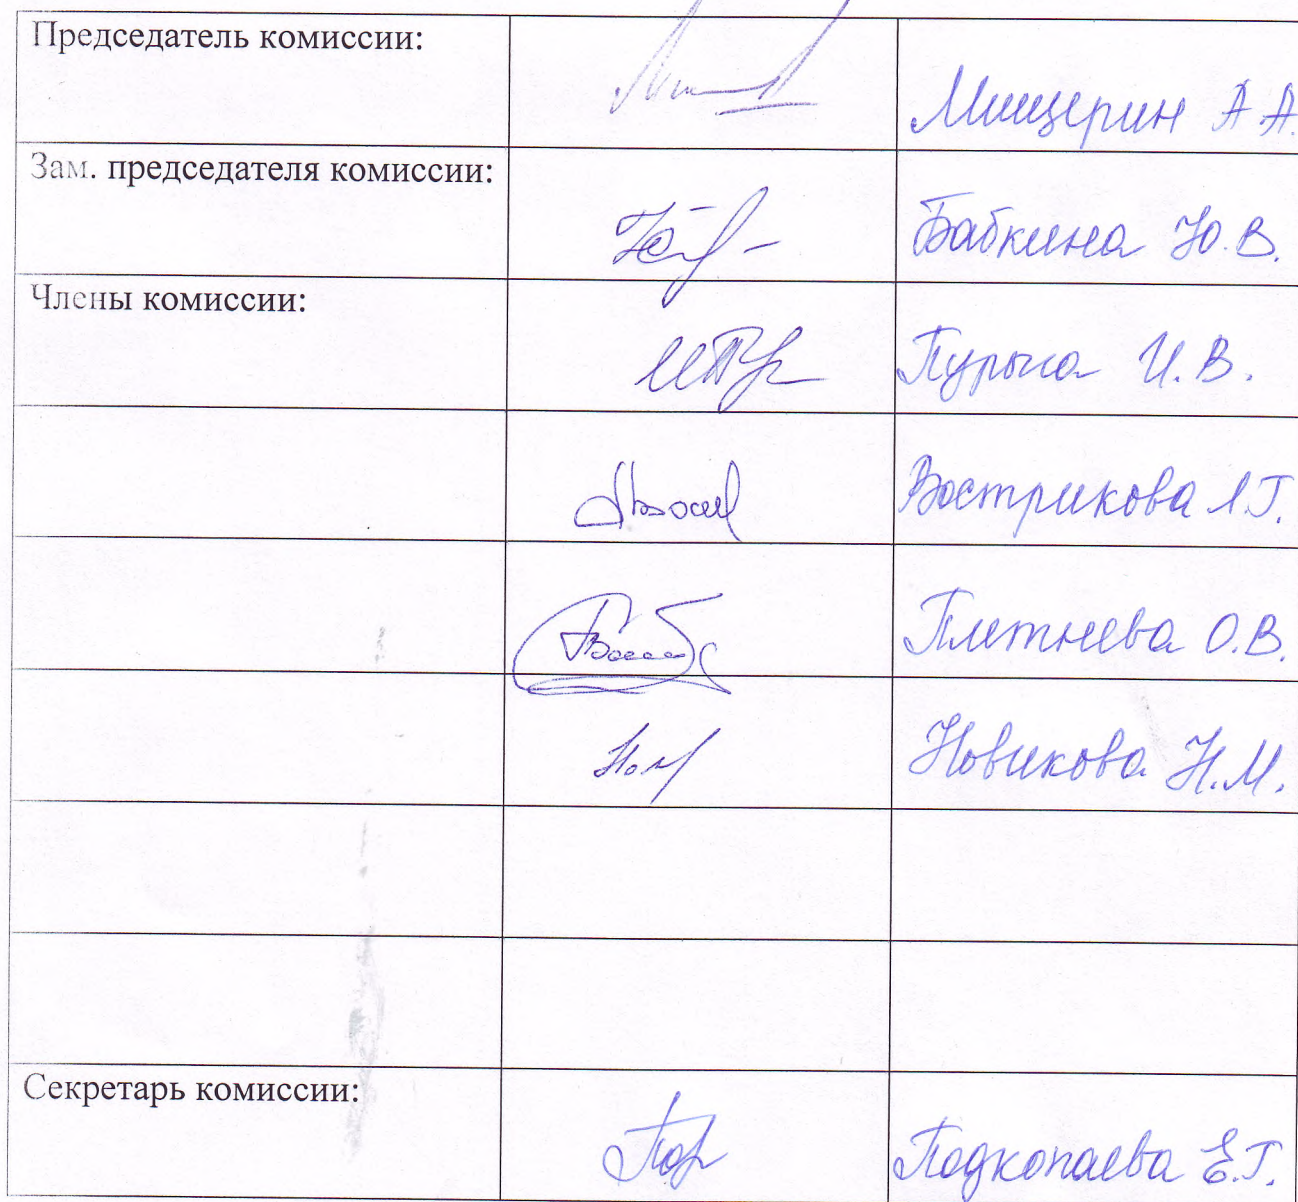 Председатель комиссии:
Мищерин А.А.
Зам. председателя комиссии:
Бабкина Ю.В.
Члены комиссии:
И.В.
Вострикова Л.Г.
Плетнева О.В.
Новикова Н.М.
Секретарь комиссии:
Подкопаева Е.Г.